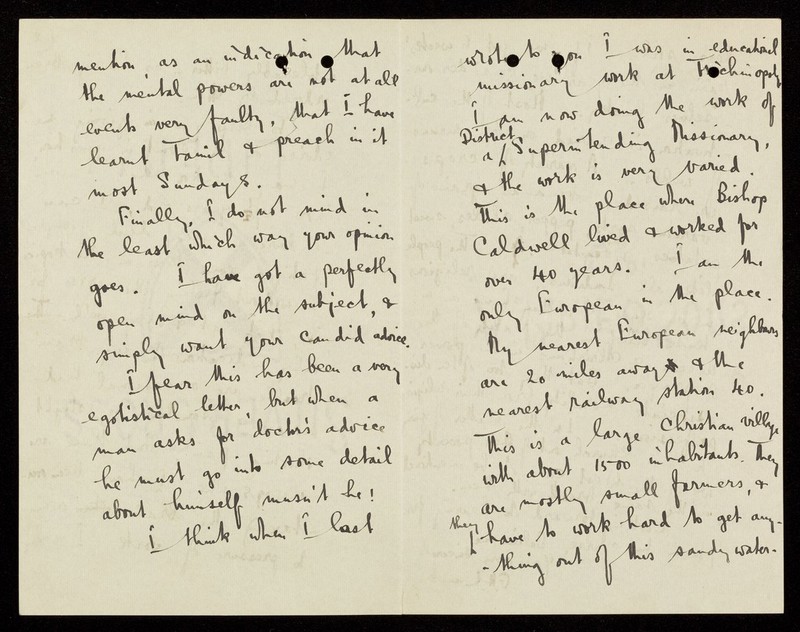 mention, as an indication that
the mental powers are not at all
events very faulty, that I have
learnt Tamil & preach in it
most Sundays.
Finally, I do not mind in
the least which way your opinion
goes. I have got a perfectly
open mind on the subject, &
simply want your candid advice.
I fear this has been a very
egotistical letter, but when a
man asks for doctor's advice
he must go into some detail
about himself mustn't he!
I think when I last
wrote to you I was in educational
missionary work at Trichinopoly
I am now doing the work of
a District Superintending Missionary,
& the work is very varied.
This is the place where Bishop
Caldwell lived & worked for
over 40 years. I am the
only European in the place.
My nearest European neighbours
are 20 miles away & the
nearest railway station 40.
This is a large Christian village
with about 1500 inhabitants. They
are mostly small farmers, &
they have to work hard to get any-
-thing out of this sandy water-